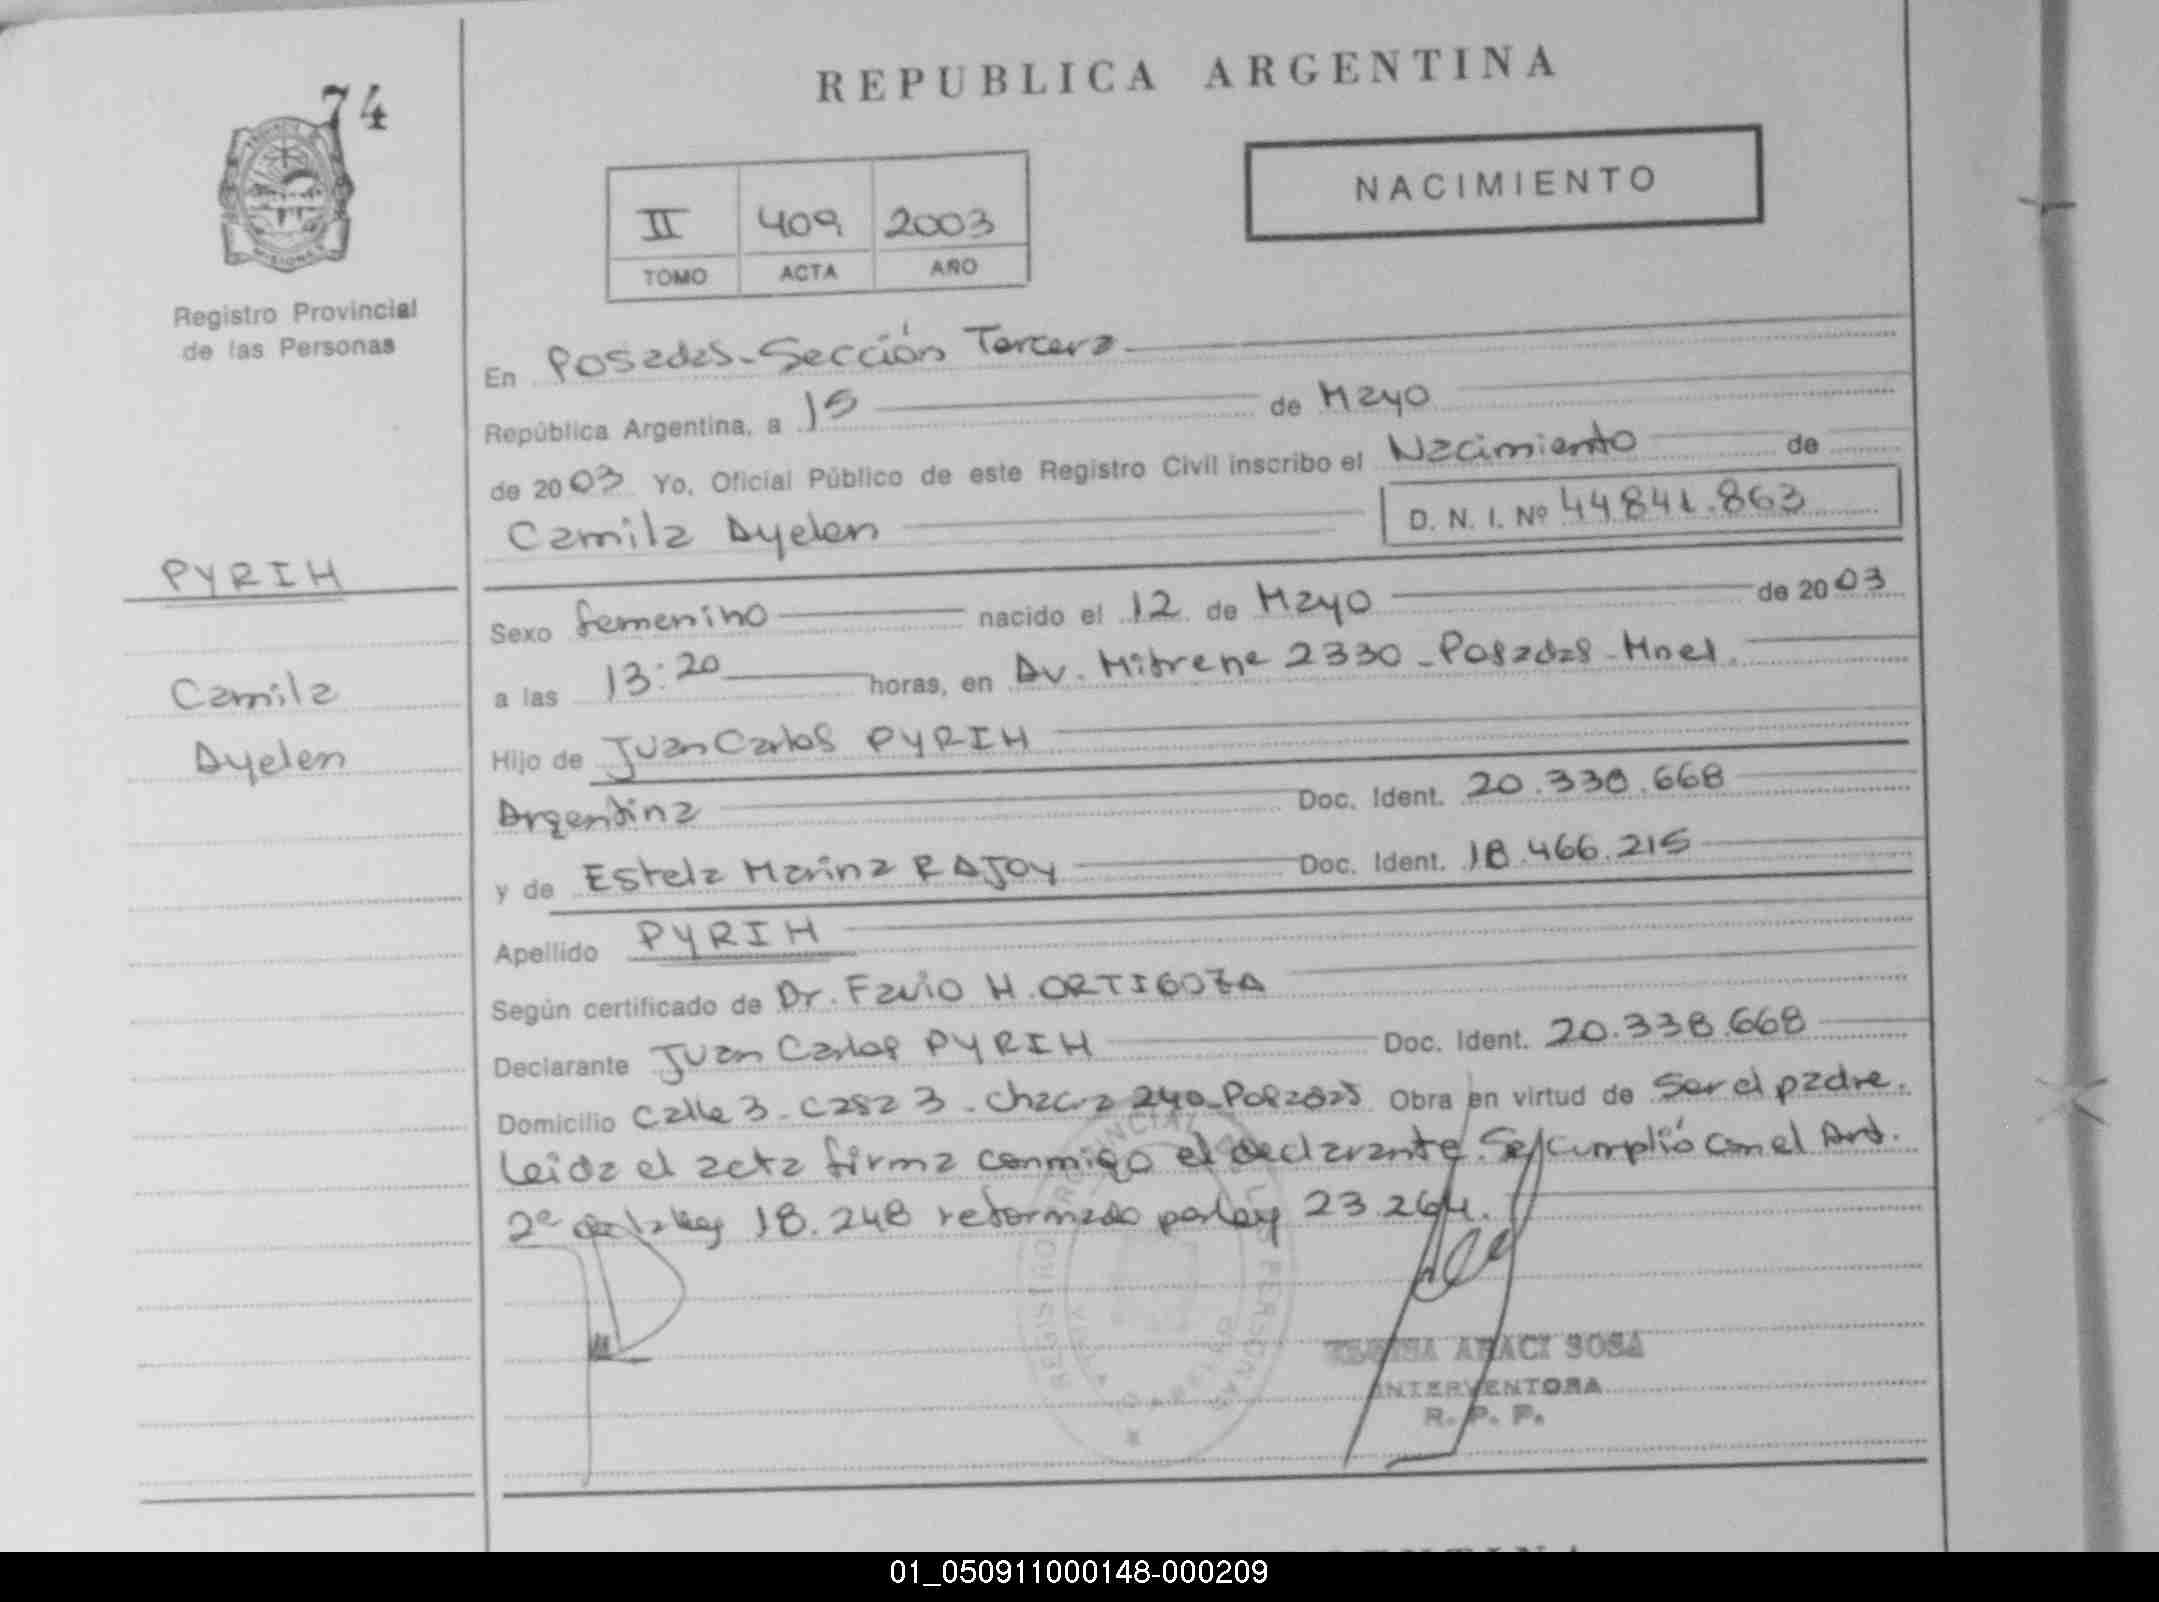 74
REPUBLICA ARGENTINA
NACIMIENTO
II 409 2003
TOMO ACTA AÑO
Registro Provincial
de las Personas
En Posadas - Sección Tercera
República Argentina, a 15 de Mayo
de 2003 Yo, Oficial Público de este Registro Civil inscribo el Nacimiento de
Camila Ayelen D. N. I. Nº 44841.863
PYRIH
Camila
Ayelen
Sexo femenino nacido el 12 de Mayo de 2003
a las 13:20 horas, en Av. Mitre nº 2330 - Posadas - Mnes.
Hijo de Juan Carlos PYRIH
Argentina Doc. Ident. 20.338.668
y de Estela Marina RAJOY Doc. Ident. 18.466.215
Apellido PYRIH
Según certificado de Dr. Favio H. ORTIGOZA
Declarante Juan Carlos PYRIH Doc. Ident. 20.338.668
Domicilio Calle 3 - casa 3 - chacra 240 - Posadas Obra en virtud de ser el padre.
Leida el acta firma conmigo el declarante. Se cumplió con el Art.
2º de la ley 18.248 reformado por ley 23.264.
ARACI SOSA
INTERVENTORA
R. P. P.
01_050911000148-000209